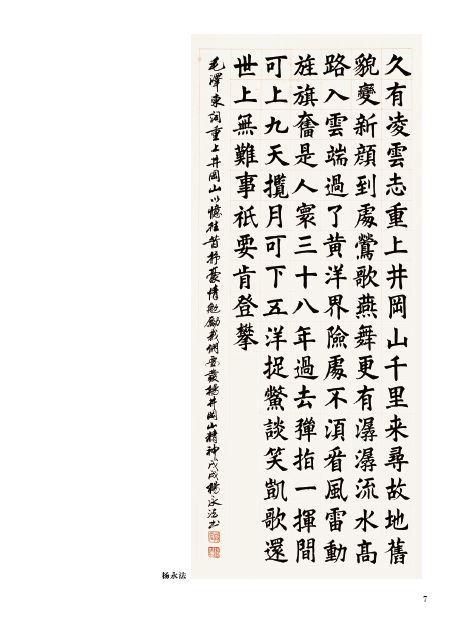 久有凌雲志重上井岡山千里来尋故地舊
貌變新顔到處鶯歌燕舞更有潺潺流水高
路入雲端過了黄洋界險處不湏看風雷動
旌旗奮是人寰三十八年過去彈指一揮間
可上九天攬月可下五洋捉鱉談笑凱歌還
世上無難事衹要肯登攀
毛澤東詞重上井岡山以憶往昔抒豪情勉勵我們要發揚井岡山精神戊戌楊永法书
杨永法
7